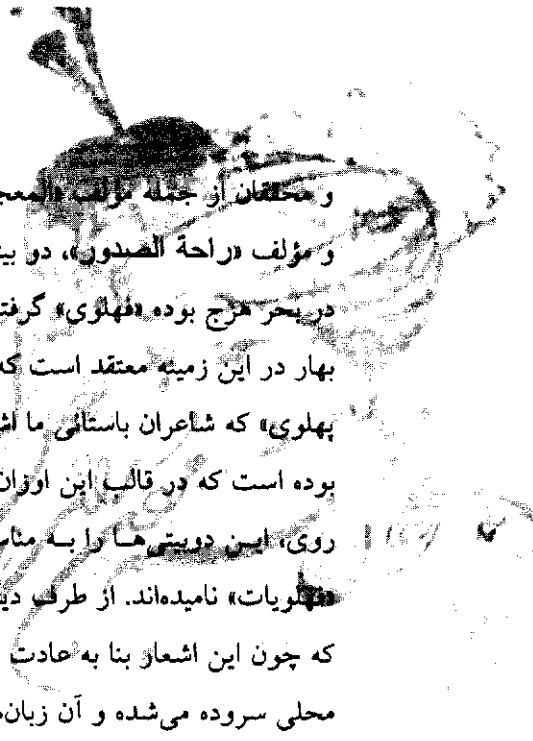 و محققان از جمله مؤلف «المعج
و مؤلف «راحة الصدور»، دو بی
در بحر هزج بوده «فهلوی» گرفت
بهار در این زمینه معتقد است که
پهلوی» که شاعران باستانی ما اش
بوده است که در قالب این اوزان
روی، ایـن دوبیتی‌هـا را بـه مناس
«فهلویات» نامیده‌اند. از طرف دی
که چون این اشعار بنا به عادت
محلی سروده می‌شده و آن زبان‌ه